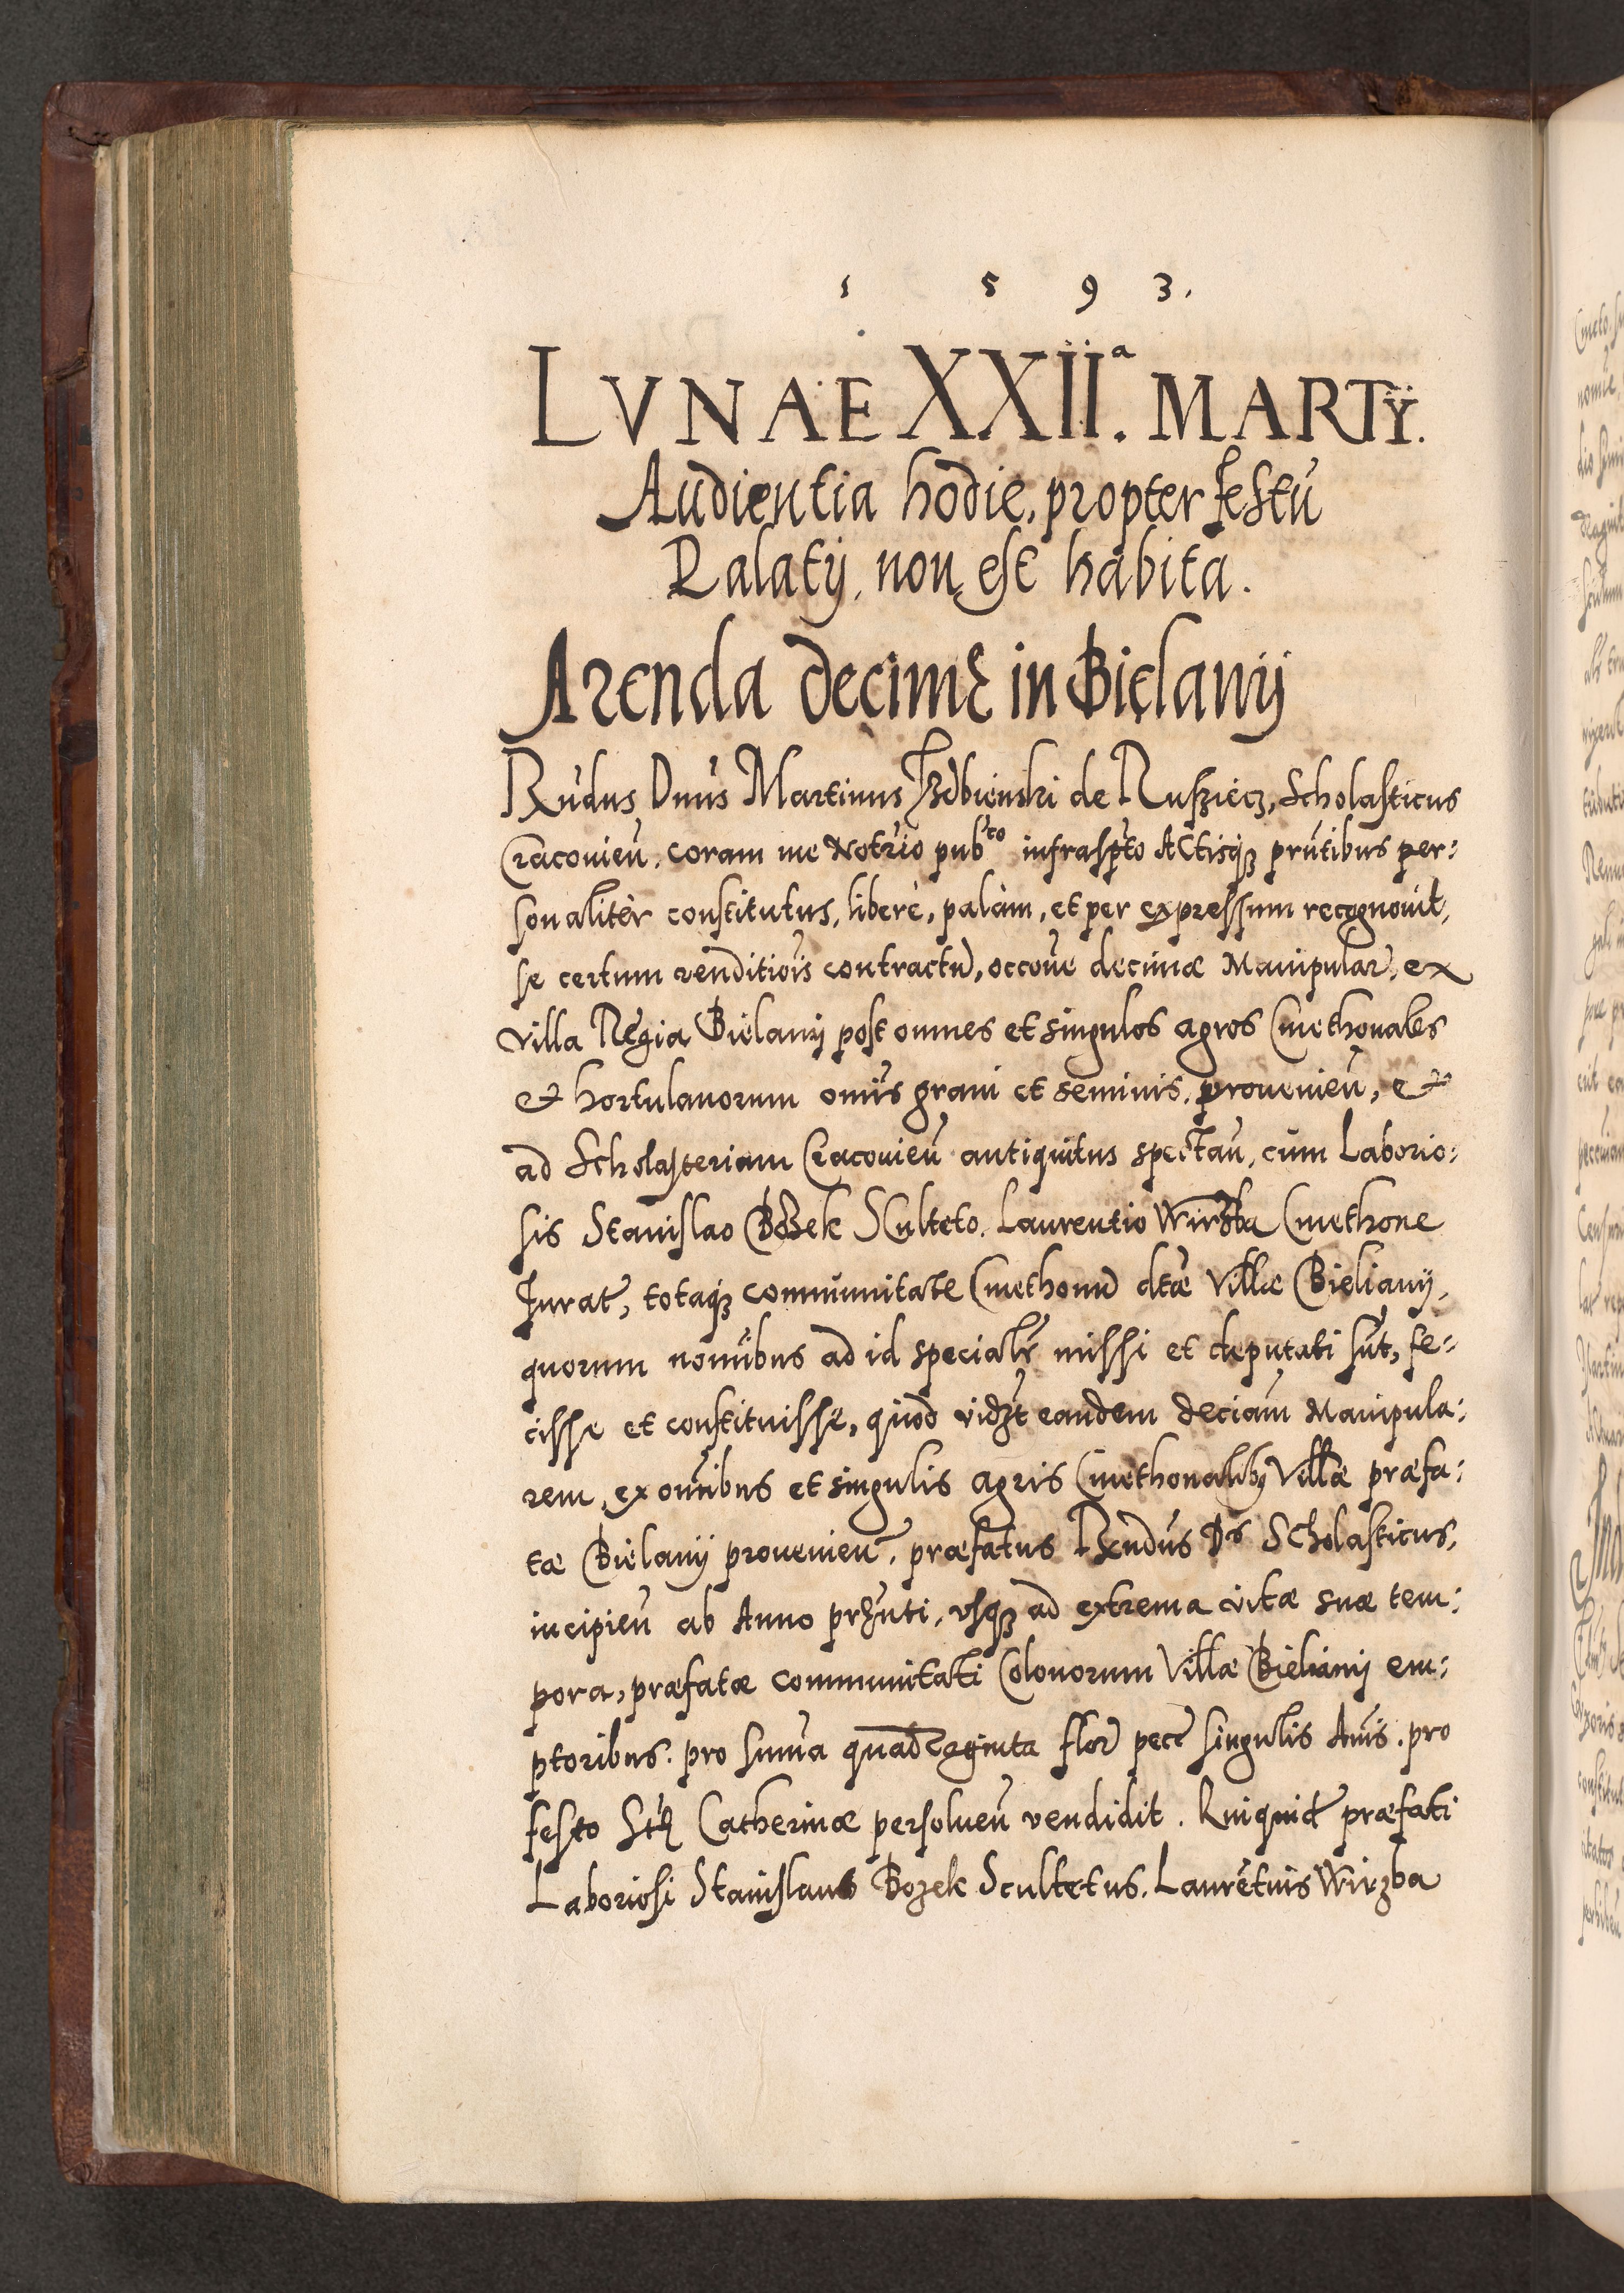 1 5 9 3.
LVNAE XXII.ª MARTŸ.
Audientia hodie, propter festū
Palatÿ, non est habita.
Arenda decimę in Bielanÿ
Rn̄dus Dn̄us Martinus Izdbienski de Rusziecz, Scholasticus
Cracouien̄. coram me Notr̄io pubᶜᵒ infrasp̄to Actisqꝫ pr̄ntibus per:
sonalitèr constitutus, liberè, palàm, et per expressum recognouit,
se certum venditiōis contractū, occōne decimæ Manipular̄, ex
villa Regia Bielanÿ post omnes et singulos agros Cmethonales
& hortulanorum om̄is grani et seminis, prouenien̄, &
ad Scholasteriam Cracouien̄ antiquitus spectan̄, cùm Laborio:
sis Stanislao Bozek Sculteto. Laurentio Wirzba Cmethone
Jurat̄, totaqꝫ communitate Cmethonū dc̄tæ Villæ Bielianÿ,
quorum nom̄ibus ad id specialr̄ missi et deputati sūt, fe:
cisse et constituisse, quòd vidꝫt eandem decim̄am Manipula:
rem, ex om̄ibus et singulis agris Cmethonalibꝫ Villæ præfa:
tæ Bielanÿ prouenien̄. præfatus Rn̄dus Dˢ Scholasticus,
incipien̄ ab Anno prꝫn̄ti, vsqꝫ ad extrema vitæ suæ tem:
pora, præfatæ communitati Colonorum Villæ Bielianÿ em:
ptoribus. pro sum̄a quadraginta flor̄ pecᵉ singulis An̄is. pro
festo Stę Catherinæ persoluen̄ vendidit. Quiquid̄ præfati
Laboriosi Stanislaus Bozek Scultetus. Laurētius Wirzba